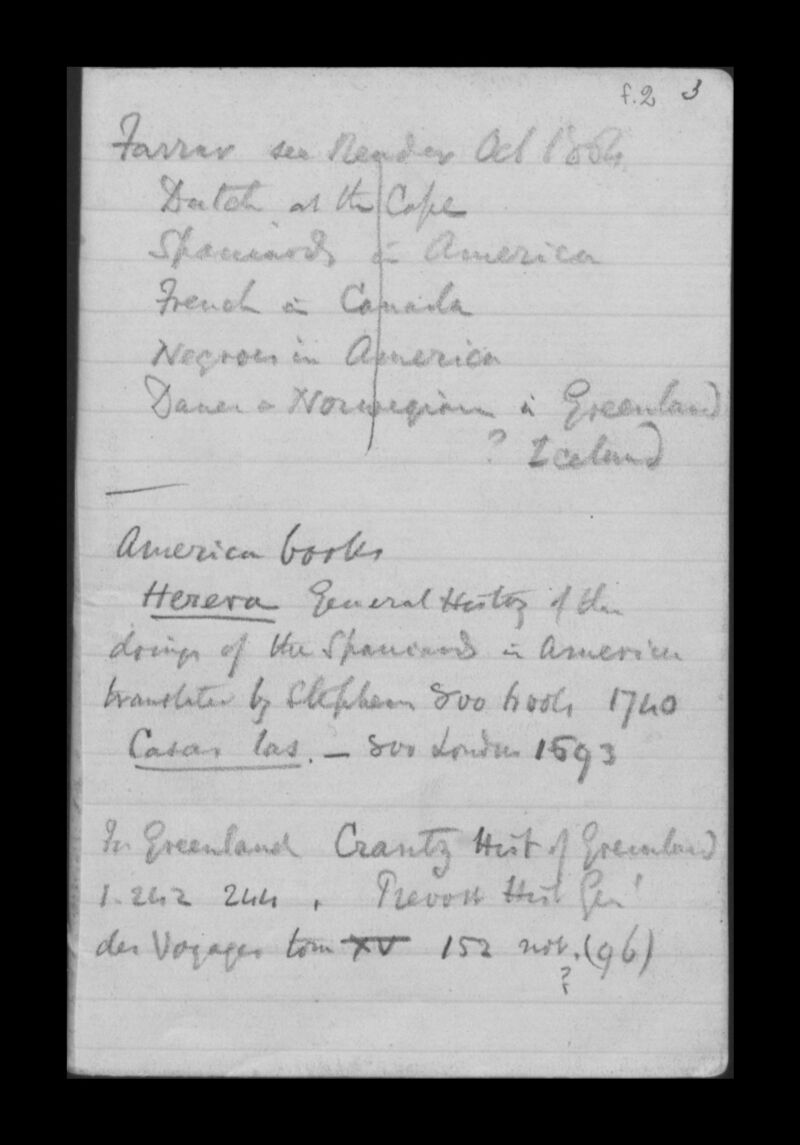 f.2 3
Farrar see Reader Oct 1864
Dutch at the Cape
Spaniards in America
French in Canada
Negroes in America
Danes & Norwegians in Greenland
? Iceland
America books
Herera General History of the
doings of the Spaniards in America
translated by Stephens 8vo 1740
Casas las. — 8vo London 1693
In Greenland Crantz Hist of Greenland
1. 242 244, Prevost Hist Gen'
des Voyages tom XV 152 not. (96)
?